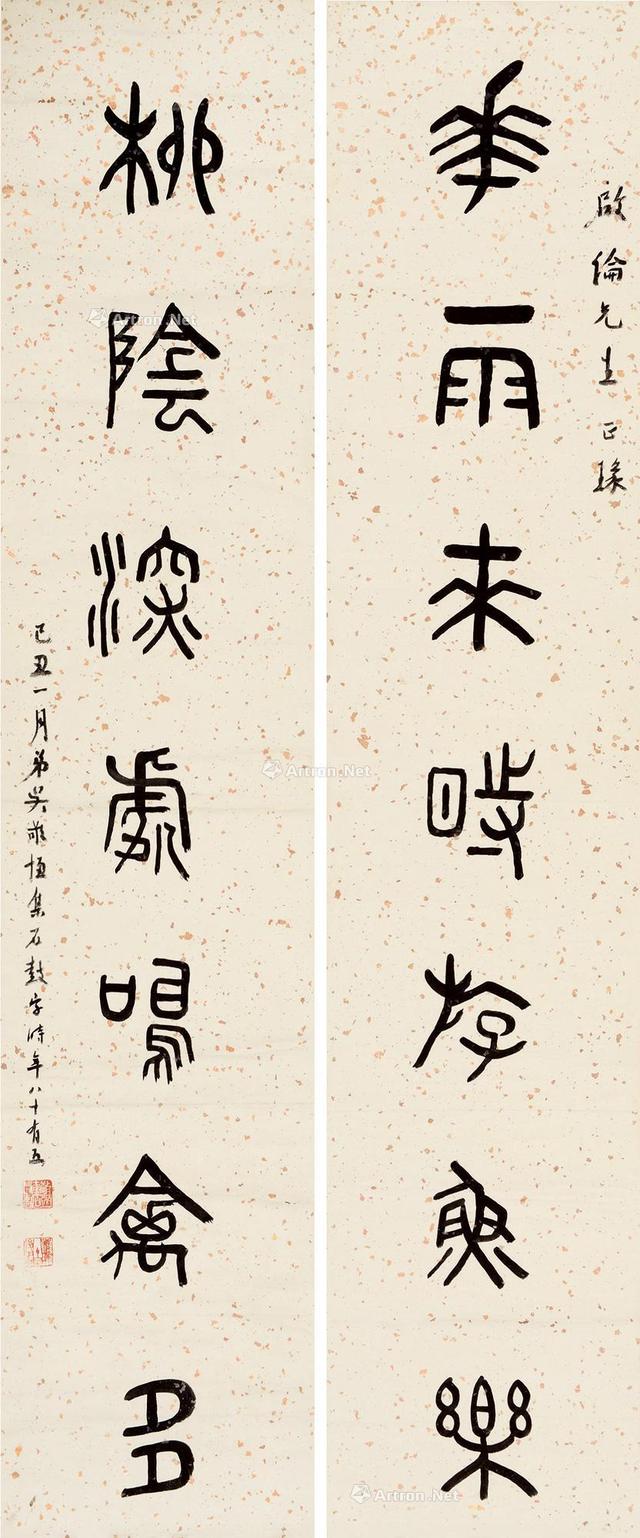 啟倫先生正瑑
華雨來時斿魚樂
柳陰深處鳴禽多
己丑一月弟吳敬恆集石鼓字時年八十有五
Artron.Net
Artron.Net
Artron.Net